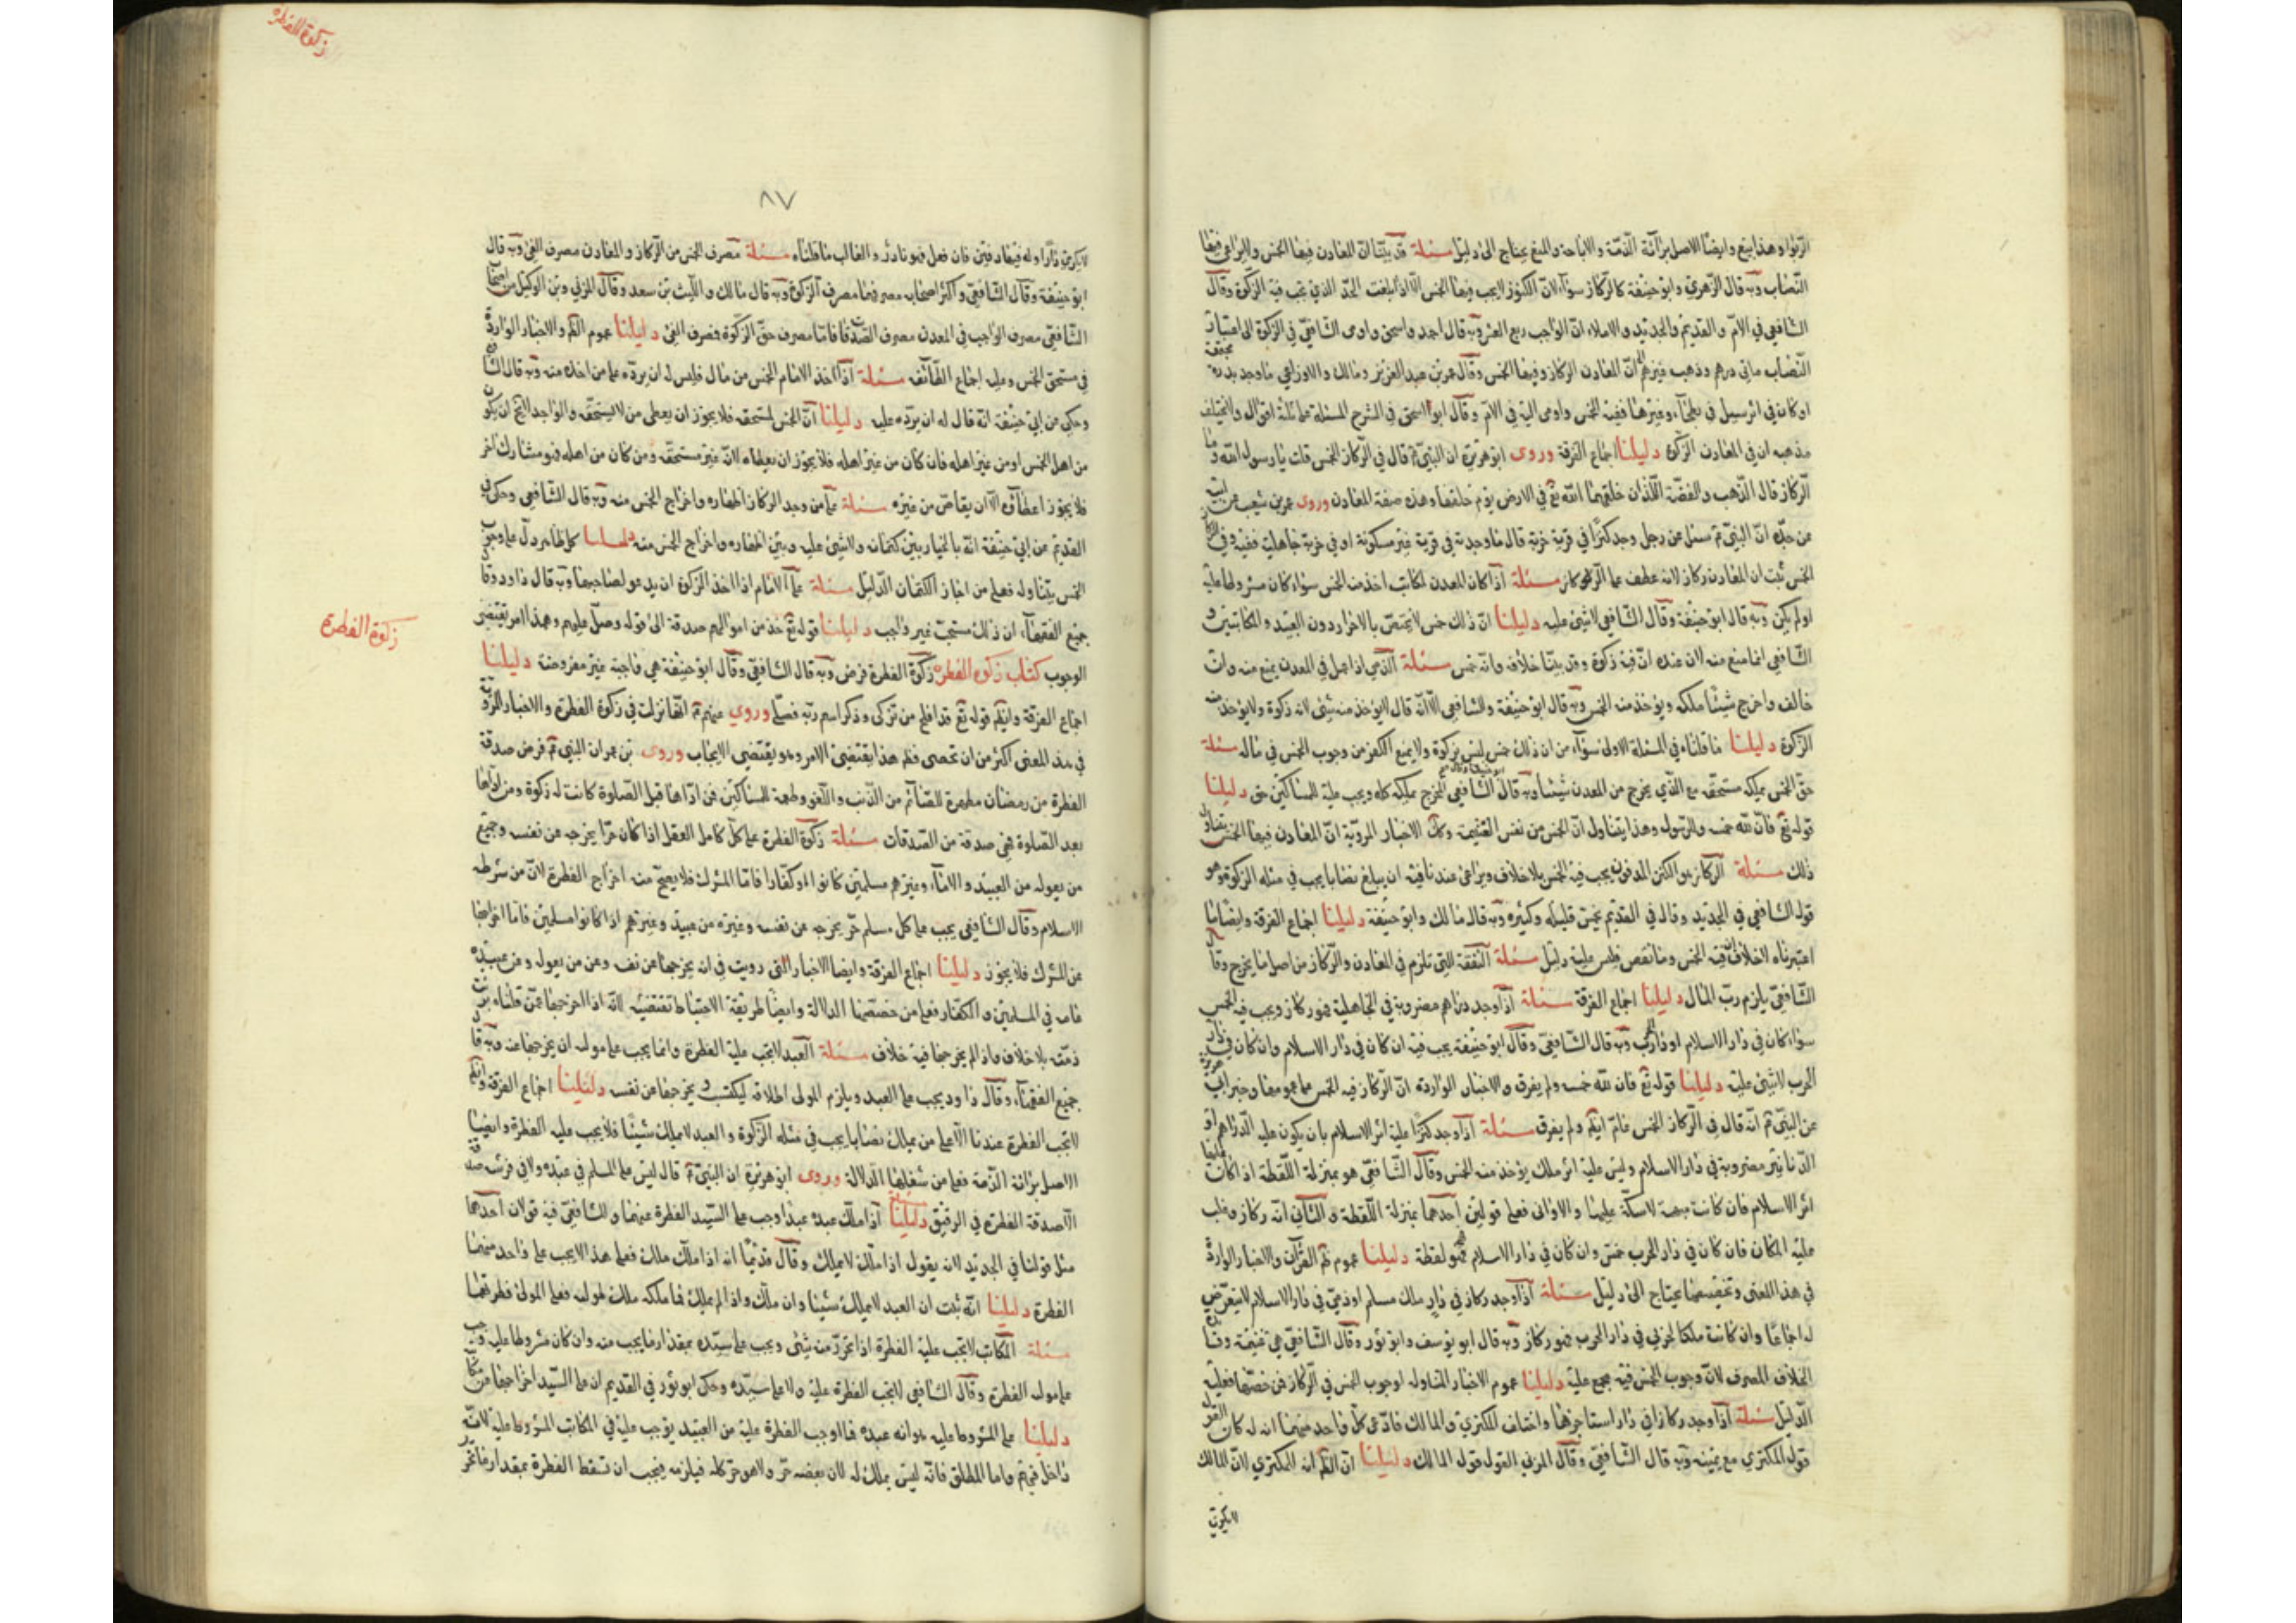 الربوا وهذا بيع وايضا الاصل برائة الذمة والاباحة والمنع يحتاج الى دليل مسئلة قد بيّنا انّ المعادن فيها الخمس ولا يراعى فيها
النّصاب وبه قال الزهري وابو حنيفة كالركاز سواء الّا انّ الكنوز لا يجب فيها الخمس الّا اذا بلغت الحدّ الذي تجب فيه الزكوة وقال
الشافعي في الامّ والقديم والجديد والاملاء انّ الواجب ربع العشر وبه قال احمد واسحق واومى الشافعيّ في الزكوة الى اعتبار
النّصاب مائتى درهم وذهب غيرهم انّ المعادن الركاز وفيها الخمس وقال عمر بن عبد العزيز ومالك والاوزاعي ما وجد بدرة مجتمعة
او كان في اثر سيل في بطحاء وغيرها ففيه الخمس واومى اليه في الامّ وقال ابو اسحق في الشرح المسئلة على ثلثة اقوال ولا يختلف
مذهبه ان في المعادن الزكوة دليلنا اجماع الفرقة وروى ابو هريرة ان النبيّ قال في الركاز الخمس قلت يا رسول الله وما
الركاز قال الذهب والفضّة اللّذان خلقهما الله تع في الارض يوم خلقها وهذه صفة المعادن وروى عمرو بن شعيب عن ابيه
عن جدّه انّ النبيّ سئل عن رجل وجد كنزا في قرية خربة قال ما وجدته في قرية غير مسكونة او في خربة جاهلية ففيه وفي الركاز
الخمس ثبت ان المعادن ركاز لانه عطف على الركاز مسئلة اذا كان المعدن لمكاتب اخذ منه الخمس سواء كان مشروطا عليه
او لم يكن وبه قال ابو حنيفة وقال الشافعي لا شئ عليه دليلنا انّ ذلك خمس لا يختصّ بالاحرار دون العبيد والمكاتبين و
الشافعي انما منع منه لان عنده انّه زكوة وقد بيّنا خلافه وانه خمس مسئلة الذمي اذا عمل في المعدن يمنع منه وان
خالف واخرج شيئًا ملكه ويؤخذ منه الخمس وبه قال ابو حنيفة والشافعي الّا انّه قال لا يؤخذ منه شئ لانه زكوة ولا يؤخذ منه
الزكوة دليلنا ما قلناه في المسئلة الاولى سواء من ان ذلك خمس ليس بزكوة ولا يمنع الكفر من وجوب الخمس في ماله مسئلة
حقّ الخمس يملكه مستحقّه مع الّذي يخرج من المعدن شيئا وبه قال ابو حنيفة وقال الشافعي المخرج يملكه كله ويجب عليه للمساكين حق دليلنا
قوله تع فانّ لله خمسه وللرسول وهذا يتناول انّ الخمس من نفس الغنيمة وكل الاخبار المرويّة انّ المعادن فيها الخمس يتناول
ذلك مسئلة الركاز هو الكنز المدفون يجب فيه الخمس بلا خلاف ويراعى عندنا فيه ان يبلغ نصابا يجب في مثله الزكوة وهو
قول الشافعي في الجديد وقال في القديم يخمس قليله وكثيره وبه قال مالك وابو حنيفة دليلنا اجماع الفرقة وايضا ما
اعتبرناه لا خلاف انّ فيه الخمس وما نقص فليس عليه دليل مسئلة النفقة التي تلزم في المعادن والركاز من اصل ما يخرج وقال
الشافعي يلزم ربّ المال دليلنا اجماع الفرقة مسئلة اذا وجد دراهم مضروبة في الجاهلية فهو ركاز ويجب فيه الخمس
سواء كان في دار الاسلام او دار الحرب وبه قال الشافعي وقال ابو حنيفة يجب فيه ان كان في دار الاسلام وان كان في دار
الحرب لا شئ عليه دليلنا قوله تع فان لله خمسه ولم يفرق والاخبار الواردة انّ الركاز فيه الخمس على عمومها وخبر ابي هريرة
عن النبيّ انّه قال في الركاز الخمس ولم يفرق مسئلة اذا وجد كنزا عليه اثر الاسلام بان يكون عليه الدراهم او
الدنانير مضروبة في دار الاسلام وليس عليه اثر ملك يؤخذ منه الخمس وقال الشافعي هو بمنزلة اللّقطة اذا كانت عليها
اثر الاسلام فان كانت مبهمة لا سكّة عليها والاوانى فعلى قولين احدهما بمنزلة اللّقطة والثاني انّه ركاز وغلب
عليه المكان فان كان في دار الحرب خمس وان كان في دار الاسلام فهو لقطة دليلنا عموم القرآن والاخبار الواردة
في هذا المعنى وتخصيصها يحتاج الى دليل مسئلة اذا وجد ركاز في دار ملك مسلم او ذميّ في دار الاسلام لا يتعرّض
له اجماعًا وان كانت ملكا لحربي في دار الحرب فهو ركاز وبه قال ابو يوسف وابو ثور وقال الشافعيّ هي غنيمة وفائدة
الخلاف المصرف لانّ وجوب الخمس فيه مجمع عليه دليلنا عموم الاخبار المتناولة لوجوب الخمس في الركاز فمن خصّها فعليه
الدليل مسئلة اذا وجد ركازا في دار استاجرها واختلف المكتري والمالك فادّعى كلّ واحد منهما انه له كان القول
قول المكتري مع يمينه وبه قال الشافعيّ وقال المزني القول قول المالك دليلنا انّ الظاهر انه للمكتري لانّ المالك
لا يكري
زكوة الفطرة
٨٧
لا يكري دارا وله فيها دفين فان فعل فهو نادر والغالب ما قلناه مسئلة مصرف الخمس من الركاز والمعادن مصرف الفئ وبه قال
ابو حنيفة وقال الشافعي واكثر اصحابه مصرفها مصرف الزكوة وبه قال مالك والليث بن سعد وقال المزني وبن الوكيل من اصحاب
الشّافعي مصرف الواجب في المعدن مصرف الصّدقات فامّا مصرف حقّ الركاز فمصرف الفئ دليلنا عموم الظاهر والاخبار الواردة
في مستحق الخمس وعليه اجماع الطّائفة مسئلة اذا اخذ الامام الخمس من مال فليس له ان يردّه على من اخذه منه وبه قال الشافعي
وحكى عن ابي حنيفة انّه قال له ان يردّه عليه دليلنا انّ الخمس لمستحقه فلا يجوز ان يعطى من لا يستحقه والواجد لا يخ ان يكون
من اهل الخمس او من غير اهله فان كان من غير اهله فلا يجوز ان يعطاه لانّه غير مستحقه ومن كان من اهله فهو مشارك لغير
فلا يجوز اعطاؤه الّا ان يقاصّ من غيره مسئلة على من وجد الركاز اظهاره واخراج الخمس منه وبه قال الشافعي وحكى في
القديم عن ابي حنيفة انّه بالخيار بين كتمانه ولا شئ عليه وبين اظهاره واخراج الخمس منه دليلنا كل ظاهر دلّ على وجوب
الخمس يتناوله فعلى من اجاز الكتمان الدّليل مسئلة على الامام اذا اخذ الزكوة ان يدعو لصاحبها وبه قال داود وقال
جميع الفقهاء ان ذلك مستحبّ غير واجب دليلنا قوله تع خذ من اموالهم صدقة الى قوله وصلّ عليهم وهذا امر يقتضى
الوجوب كتاب زكوة الفطرة زكوة الفطرة فرض وبه قال الشافعيّ وقال ابو حنيفة هي واجبة غير مفروضة دليلنا
زكوة الفطرة
اجماع الفرقة وايضا قوله تع قد افلح من تزكى وذكر اسم ربه فصلّى وروي عنهم انّها نزلت في زكوة الفطرة والاخبار المروية
في هذا المعنى اكثر من ان تحصى فظاهر هذا يقتضى الامر وهو يقتضى الايجاب وروى بن عمر ان النبي فرض صدقة
الفطرة من رمضان مطهرة للصّائم من الذنب واللّغو وطعمة للمساكين فمن ادّاها قبل الصّلوة كانت له زكوة ومن ادّاها
بعد الصّلوة فهي صدقة من الصّدقات مسئلة زكوة الفطرة على كلّ كامل العقل اذا كان حرّا يخرجه عن نفسه وجميع
من يعوله من العبيد والاماء وغيرهم مسلمين كانوا او كفّارا فامّا المشرك فلا يصحّ منه اخراج الفطرة لانّ من شرطه
الاسلام وقال الشافعي يجب على كل مسلم حرّ يخرجه عن نفسه وغيره من عبيد وغيرهم اذا كانوا مسلمين فامّا اخراجها
عن المشرك فلا يجوز دليلنا اجماع الفرقة وايضا الاخبار التي رويت في انه يخرجها عن نفسه وعن من يعول وعن عبيده
عامّ في المسلمين والكفّار فعلى من خصّصها الدلالة وايضا طريقة الاحتياط تقتضيه لانّه اذا اخرجها عمّن قلناه برئت
ذمّته بلا خلاف واذا لم يخرجها فيه خلاف مسئلة العبد لا تجب عليه الفطرة وانما يجب على مولاه ان يخرجها عنه وبه قال
جميع الفقهاء وقال داود يجب على العبد ويلزم المولى اطلاقه ليكتسب ويخرجها عن نفسه دليلنا اجماع الفرقة وايضا
لا تجب الفطرة عندنا الّا على من يملك نصابا يجب في مثله الزكوة والعبد لا يملك شيئًا فلا يجب عليه الفطرة وايضا
الاصل برائة الذّمة فعلى من شغلها الدّلالة وروى ابو هريرة ان النبيّ قال ليس على المسلم في عبده ولا في فرسه صدقة
الّا صدقة الفطرة في الرقيق دليلنا مسئلة اذا ملّك عبده عبدا وجب على السّيد الفطرة عنهما وللشافعيّ فيه قولان احدهما
مثل قولنا في الجديد لانه يقول اذا ملّك لا يملك وقال قديمًا انه اذا ملّك ملك فعلى هذا لا يجب على واحد منهما
الفطرة دليلنا انّه ثبت ان العبد لا يملك شيئا وان ملّك واذا لم يملك فما ملكه ملك لمولاه فعلى المولى فطرتهما
مسئلة المكاتب لا تجب عليه الفطرة اذا تحرّر منه شئ ويجب على سيّده بمقدار ما يجب منه وان كان مشروطا عليه وجب
على مولاه الفطرة وقال الشافعي لا تجب الفطرة عليه ولا على سيّده وحكى ابو ثور في القديم ان على السّيد اخراجها عن مكاتبه
دليلنا على المشروط عليه هو انه عبده فما اوجب الفطرة عليه من العبيد يوجب عليه في المكاتب المشروط عليه لانّه
داخل فيهم واما المطلق فانّه ليس بملك له لان بعضه حرّ ولا هو حرّ كله فيلزمه فيجب ان تسقط الفطرة بمقدار ما تحرّر
زكوة الفطرة